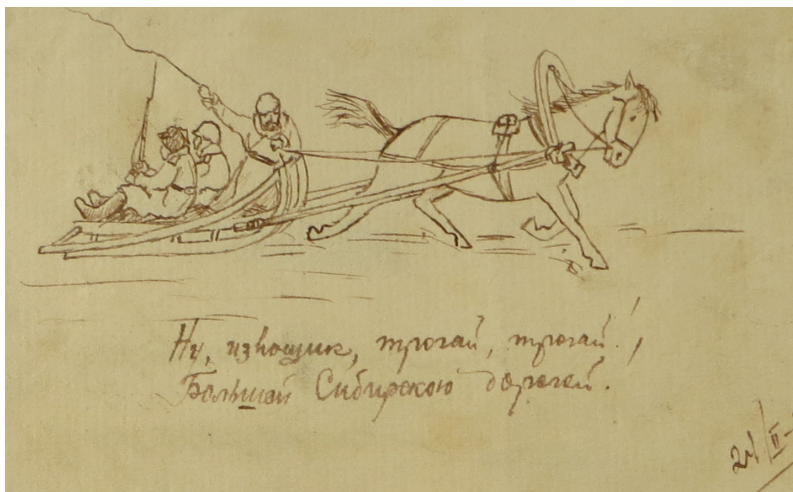 Ну, извощик, трогай, трогай!,
Большой Сибирскою дорогой!
24/II-